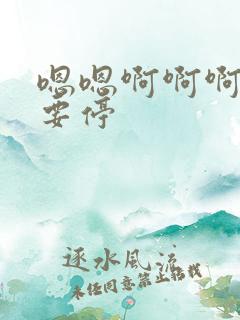 嗯嗯啊啊啊
要停
逐水风流
未经同意禁止转载